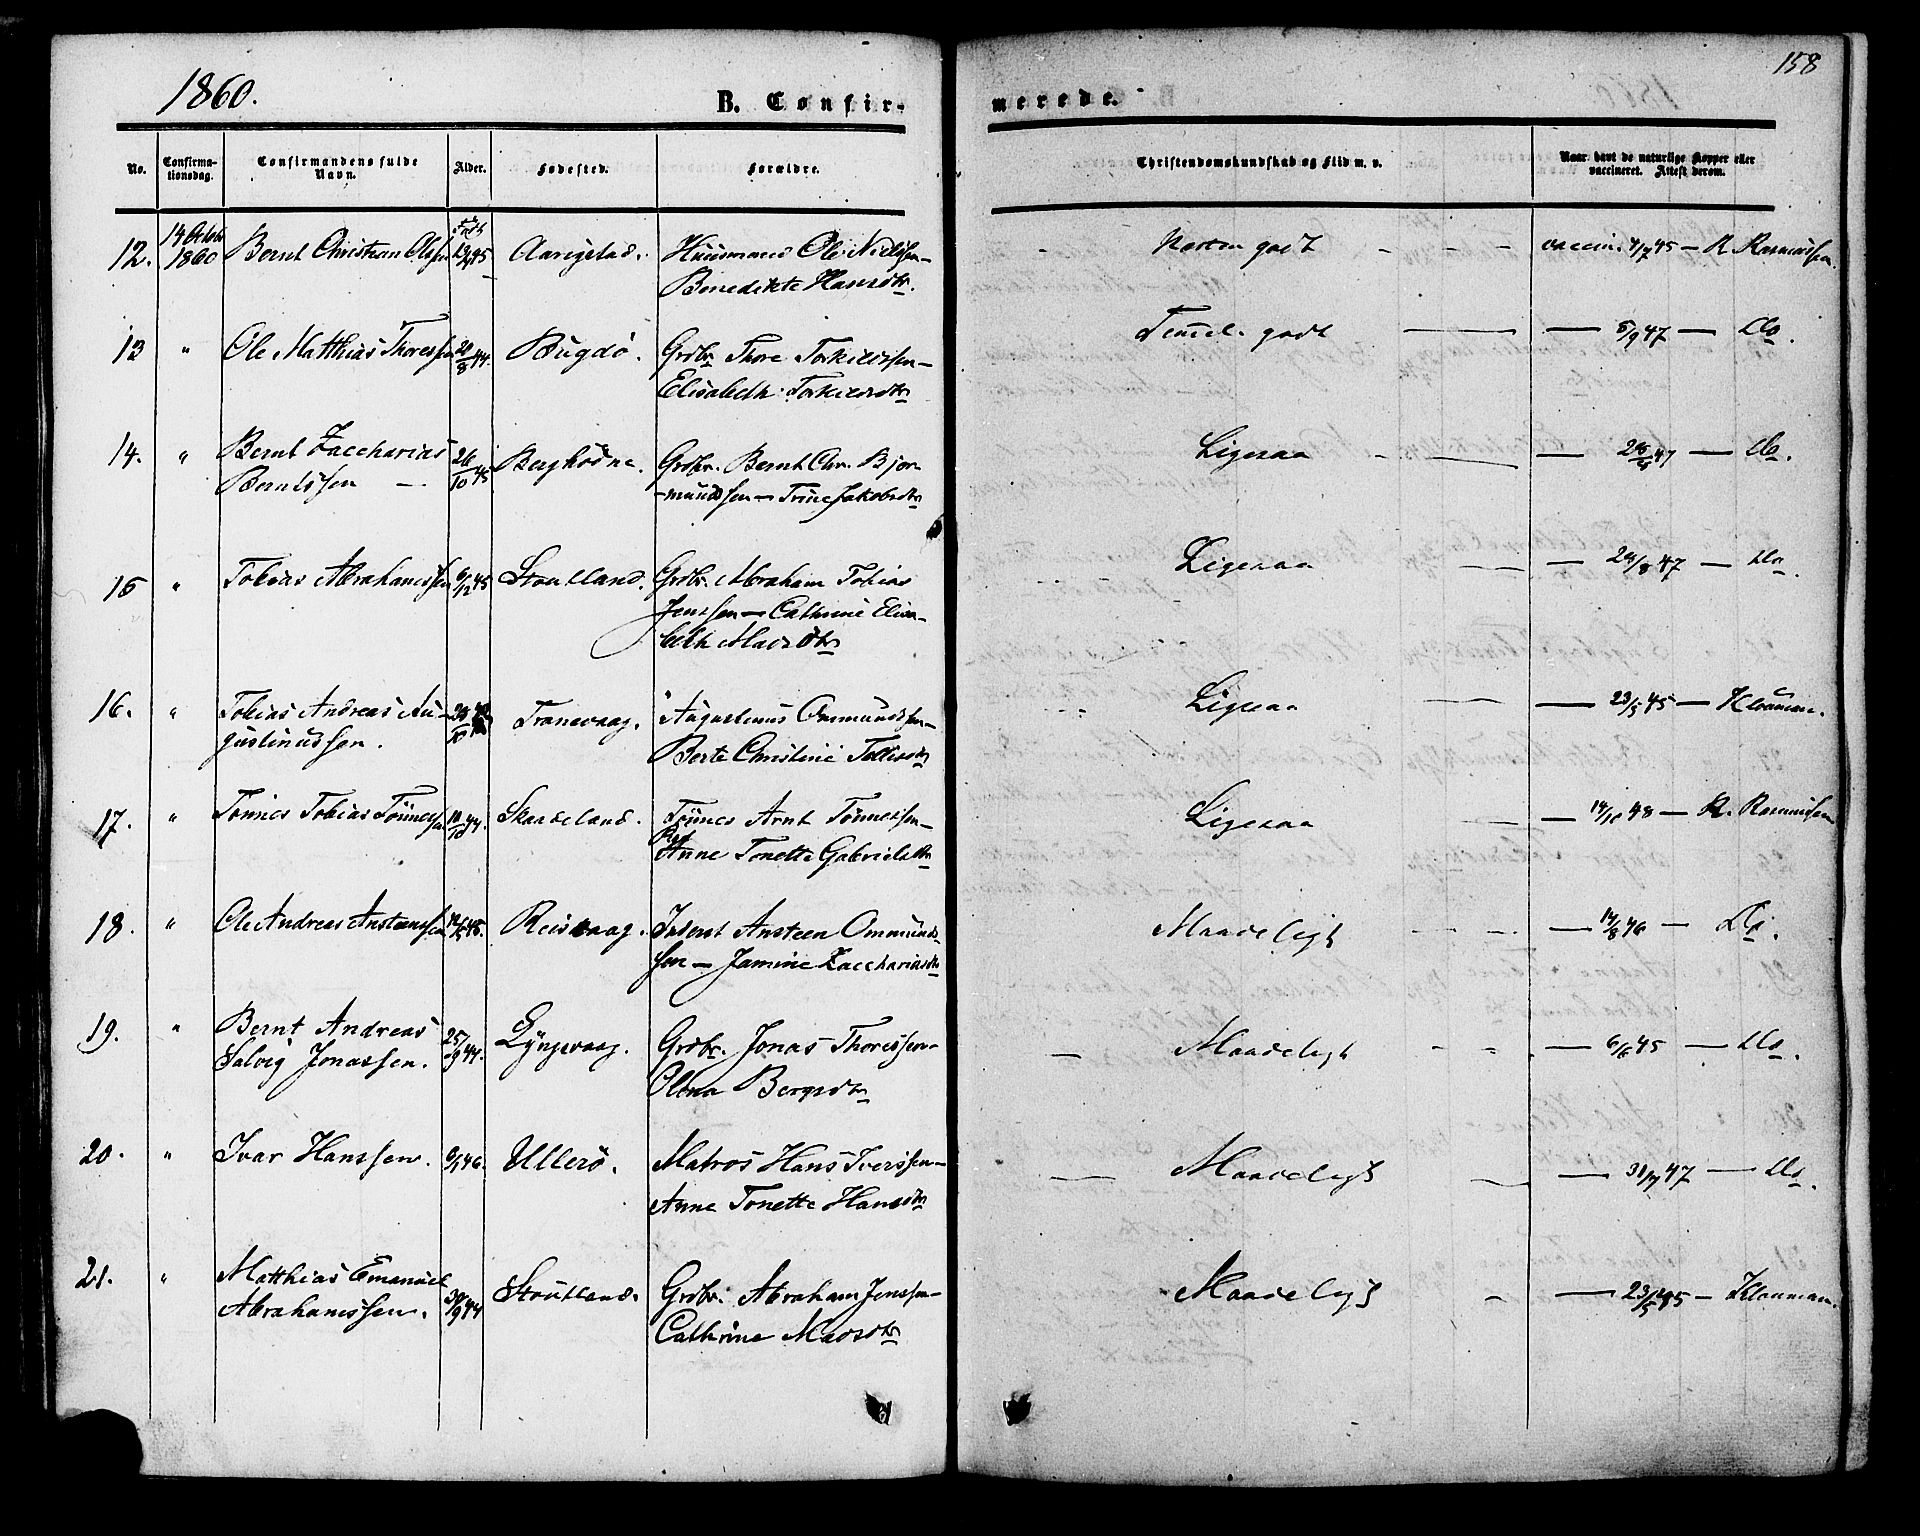 1860.
158
B. Confir-
merede.
No.
Confirma-
tionsdag.
Confirmandens fulde
Navn.
Alder.
Fødested.
Forældre.
Christendomskundskab og Flid m. v.
Naar havt de naturlige Kopper eller
vaccineret. Attest derom.
12. 14 Octobr Bernt Christian Olssen Aarigstad. Huusmand Ole Nielssen –
1860 Benedikte Hansdtr.
Næsten godt – – – vaccin. 4/7 45 – R. Rasmussen.
13 " Ole Matthias Thoressen 20/8 44. Bugdø. Grdbr. Thore Torkildssen –
Elisabeth Torkildsdtr
Temmel. godt — — 5/9 47 — Do.
14. " Bernt Zaccharias 26/10 45 Berghødne. Grdbr. Bernt Chr. Bjor-
Berntssen – mundssen – Trine Jakobsdtr
Ligesaa — 47 — Do.
15 " Tobias Abrahamssen 6/12 45 Stoutland. Grdbr. Abraham Tobias
Jenssen – Cathrine Elisa-
beth Madsdtr
Ligesaa — 24/8 47 — Do.
16. " Tobias Andreas Au- Tranevaag. Augustinus Ommundssen –
gustinussen. Berte Christine Tollisdtr
Ligesaa — 23/5 45 — Klouman.
17. " Tønnes Tobias Tønnessen 10/10 44. Skaadeland. Tønnes Arnt Tønnessen –
Anne Tonette Gabrielsdtr
Ligesaa — 14/10 48 — R. Rasmussen
18. " Ole Andreas Ansteenssen 45. Reisvaag. Inderst Ansteen Ommunds-
sen – Jamine Zacchariasdtr
Maadeligt — 14/8 46 — Do.
19. " Bernt Andreas 25/9 44. Lyngvaag. Grdbr. Jonas Thoressen –
Salvig Jonassen. Olena Bergsdtr
Maadeligt — 6/6 45 — Do.
20. " Ivar Hanssen. 8/1 46. Ullerø. Matros Hans Iverssen –
Anne Tonette Hansdtr
Maadeligt — 31/7 47 — Do.
21. " Matthias Emanuel 30/9 44 Stoutland. Grdbr. Abraham Jenssen –
Abrahamssen. Cathrine Madsdtr
Maadeligt — 23/5 45 — Klouman.